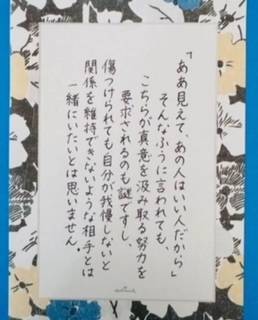 「ああ見えて、あの人はいい人だから」
そんなふうに言われても、
こちらが真意を汲み取る努力を
要求されるのも謎ですし、
傷つけられても自分が我慢しないと
関係を維持できないような相手とは
一緒にいたいとは思いません。